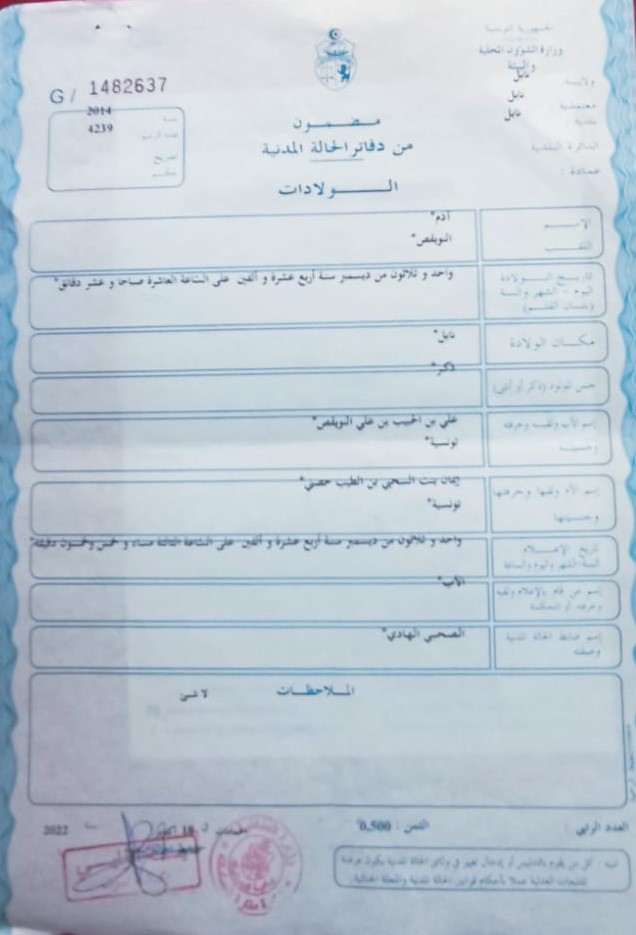 الجمهورية التونسية
وزارة الشؤون المحلية
والبيئة
ولاية : نابل
معتمدية : نابل
بلدية : نابل
الدائرة البلدية
عمادة :
G / 1482637
سنة 2014
عدد الرسم 4239
مضمون
من دفاتر الحالة المدنية
الولادات
الإسم آدم*
اللقب النويقص*
تاريخ الولادة
اليوم - الشهر والسنة
(بلسان القلم)
واحد و ثلاثون من ديسمبر سنة أربع عشرة و ألفين على الساعة العاشرة صباحا و عشر دقائق*
مكان الولادة نابل*
جنس المولود (ذكر أو أنثى) ذكر*
إسم الأب ولقبه وحرفته علي بن الحبيب بن علي النويقص*
وجنسيته تونسية*
إسم الأم ولقبها وحرفتها إيمان بنت السحبي بن الطيب حصني*
وجنسيتها تونسية*
تاريخ الإعلام
السنة-الشهر واليوم والساعة
واحد و ثلاثون من ديسمبر سنة أربع عشرة و ألفين على الساعة الثالثة مساء و خمس وخمسون دقيقة*
إسم من قام بالإعلام ولقبه الأب*
وحرفته أو المحكمة
إسم ضابط الحالة المدنية الصحبي الهادي*
وصفته
الملاحظات لا شئ
العدد الرتبي : الثمن : 0.500
18 2022
تنبيه : كل من يقوم بالتدليس أو بإدخال تغيير في وثائق الحالة المدنية يكون عرضة
للتتبعات العدلية عملا بأحكام قوانين الحالة المدنية والمجلة الجنائية.